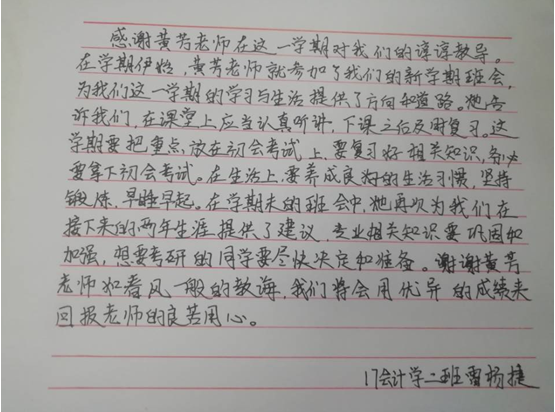 感谢黄芳老师在这一学期对我们的谆谆教导。
在学期伊始，黄芳老师就参加了我们的新学期班会，
为我们这一学期的学习与生活提供了方向和道路。她告
诉我们，在课堂上应当认真听讲，下课之后及时复习。这
学期要把重点放在初会考试上，要复习好相关知识，务必
要拿下初会考试。在生活上，要养成良好的生活习惯，坚持
锻炼，早睡早起。在学期末的班会中，她再次为我们在
接下来的两年生涯提供了建议，专业相关知识要巩固和
加强，想要考研的同学要尽快决定和准备。谢谢黄芳
老师如春风一般的教诲，我们将会用优异的成绩来
回报老师的良苦用心。
17会计学二班曹杨捷